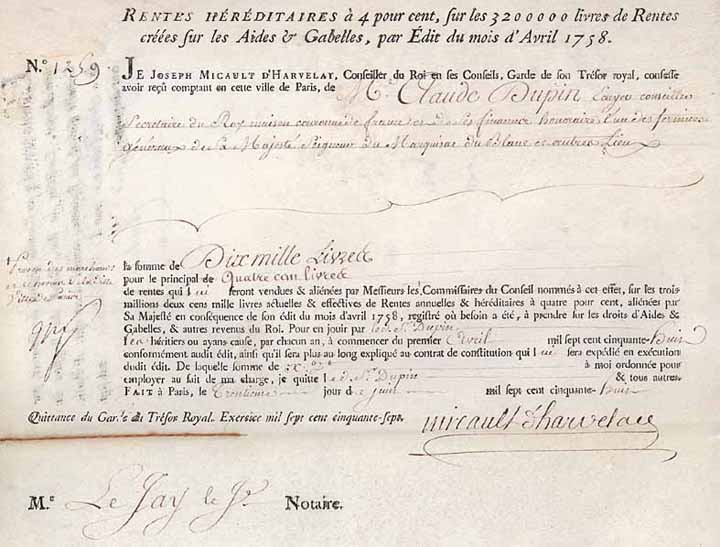 RENTES HÉRÉDITAIRES à 4 pour cent, sur les 3200000 livres de Rentes
créées sur les Aides & Gabelles, par Édit du mois d'Avril 1758.
N.o 1259.
JE JOSEPH MICAULT D'HARVELAY, Conseiller du Roi en ses Conseils, Garde de son Trésor royal, confesse
avoir reçu comptant en cette ville de Paris, de M. Claude Dupin Ecuyer conseiller
Secretaire du Roy maison couronne de france et de ses finances honoraire l'un des fermiers
généraux de Sa Majesté Seigneur du Marquisat du Blanc et autres Lieux
la somme de Dix mille Livres
pour le principal de Quatre cent livres
de rentes qui lui seront vendues & aliénées par Messieurs les Commissaires du Conseil nommés à cet effet, sur les trois
millions deux cens mille livres actuelles & effectives de Rentes annuelles & héréditaires à quatre pour cent, aliénées par
Sa Majesté en conséquence de son édit du mois d'avril 1758, registré où besoin a été, à prendre sur les droits d'Aides &
Gabelles, & autres revenus du Roi. Pour en jouir par led. S. Dupin
ses héritiers ou ayans cause, par chacun an, à commencer du premier Avril mil sept cens cinquante-huit
conformément audit édit, ainsi qu'il sera plus au long expliqué au contrat de constitution qui lui sera expédié en exécution
dudit édit. De laquelle somme de à moi ordonnée pour
employer au fait de ma charge, je quitte led. S. Dupin & tous autres.
FAIT à Paris, le Trentieme jour de juin mil sept cent cinquante-huit
Quittance du Gar. du Trésor Royal. Exercice mil sept cent cinquante-sept.
micault d'harvelay
M.e Le Jay le J.e Notaire.